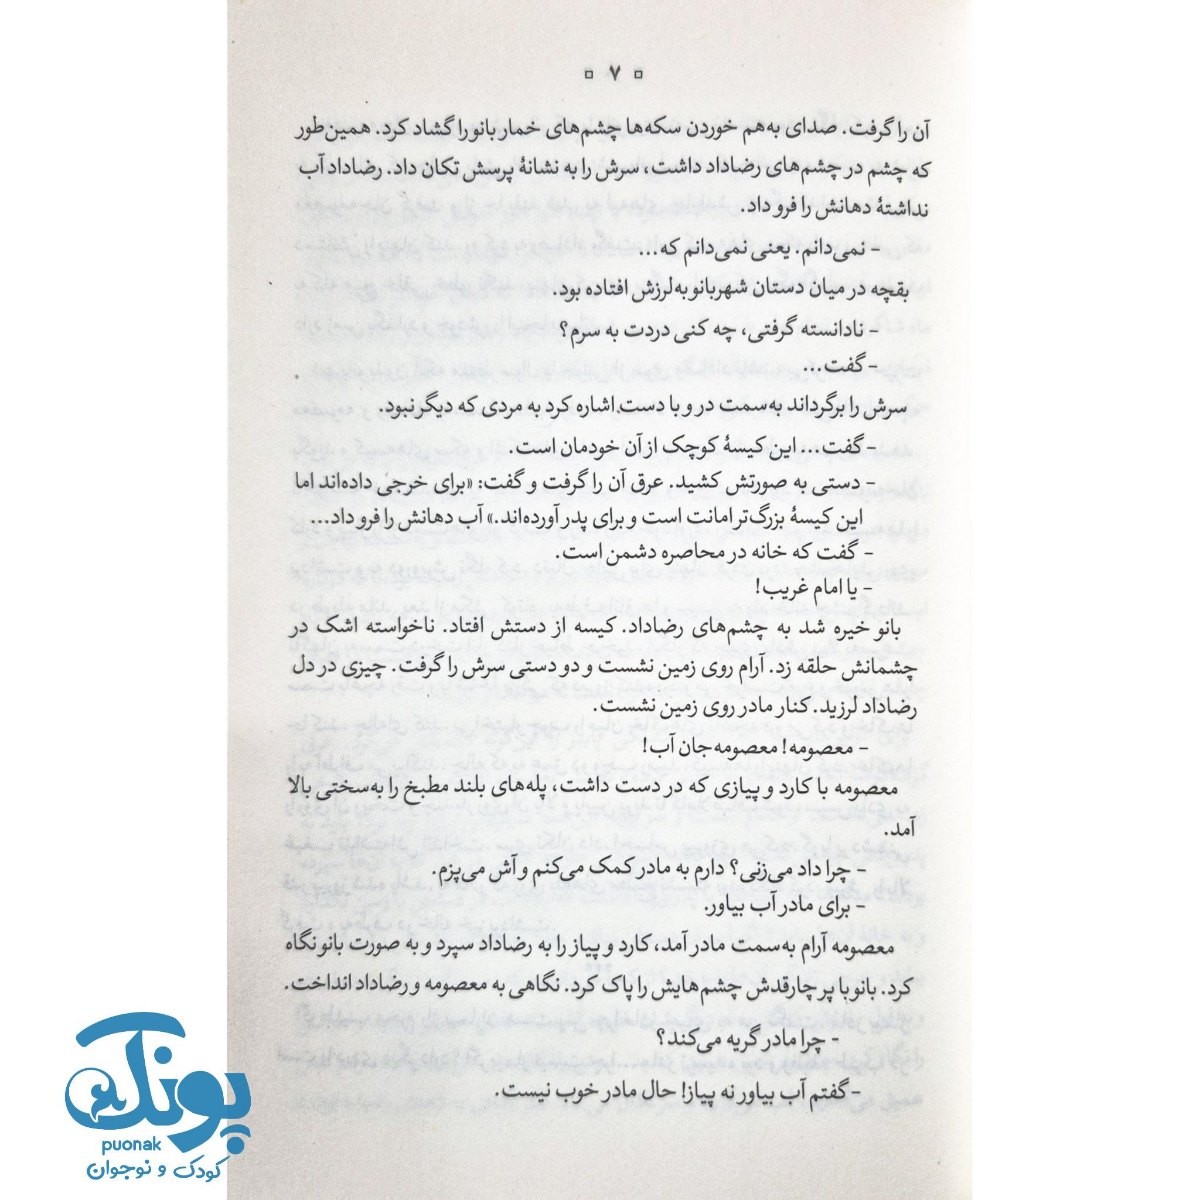 ▫ ۷ ▫
آن را گرفت. صدای به‌هم خوردن سکه‌ها چشم‌های خمار بانو را گشاد کرد. همین‌طور
که چشم در چشم‌های رضاداد داشت، سرش را به نشانهٔ پرسش تکان داد. رضاداد آب
نداشتهٔ دهانش را فرو داد.
- نمی‌دانم. یعنی نمی‌دانم که...
بقچه در میان دستان شهربانو به لرزش افتاده بود.
- نادانسته گرفتی، چه کنی دردت به سرم؟
- گفت...
سرش را برگرداند به‌سمت در و با دست اشاره کرد به مردی که دیگر نبود.
- گفت... این کیسهٔ کوچک از آن خودمان است.
- دستی به صورتش کشید. عرق آن را گرفت و گفت: «برای خرجی داده‌اند اما
این کیسهٔ بزرگ‌تر امانت است و برای پدر آورده‌اند.» آب دهانش را فرو داد...
- گفت که خانه در محاصره دشمن است.
- یا امام غریب!
بانو خیره شد به چشم‌های رضاداد. کیسه از دستش افتاد. ناخواسته اشک در
چشمانش حلقه زد. آرام روی زمین نشست و دو دستی سرش را گرفت. چیزی در دل
رضاداد لرزید. کنار مادر روی زمین نشست.
- معصومه! معصومه‌جان آب!
معصومه با کارد و پیازی که در دست داشت، پله‌های بلند مطبخ را به‌سختی بالا
آمد.
- چرا داد می‌زنی؟ دارم به مادر کمک می‌کنم و آش می‌پزم.
- برای مادر آب بیاور.
معصومه آرام به‌سمت مادر آمد، کارد و پیاز را به رضاداد سپرد و به صورت بانو نگاه
کرد. بانو با پر چارقدش چشم‌هایش را پاک کرد. نگاهی به معصومه و رضاداد انداخت.
- چرا مادر گریه می‌کند؟
- گفتم آب بیاور نه پیاز! حال مادر خوب نیست.
پونک
puonak
کودک و نوجوان